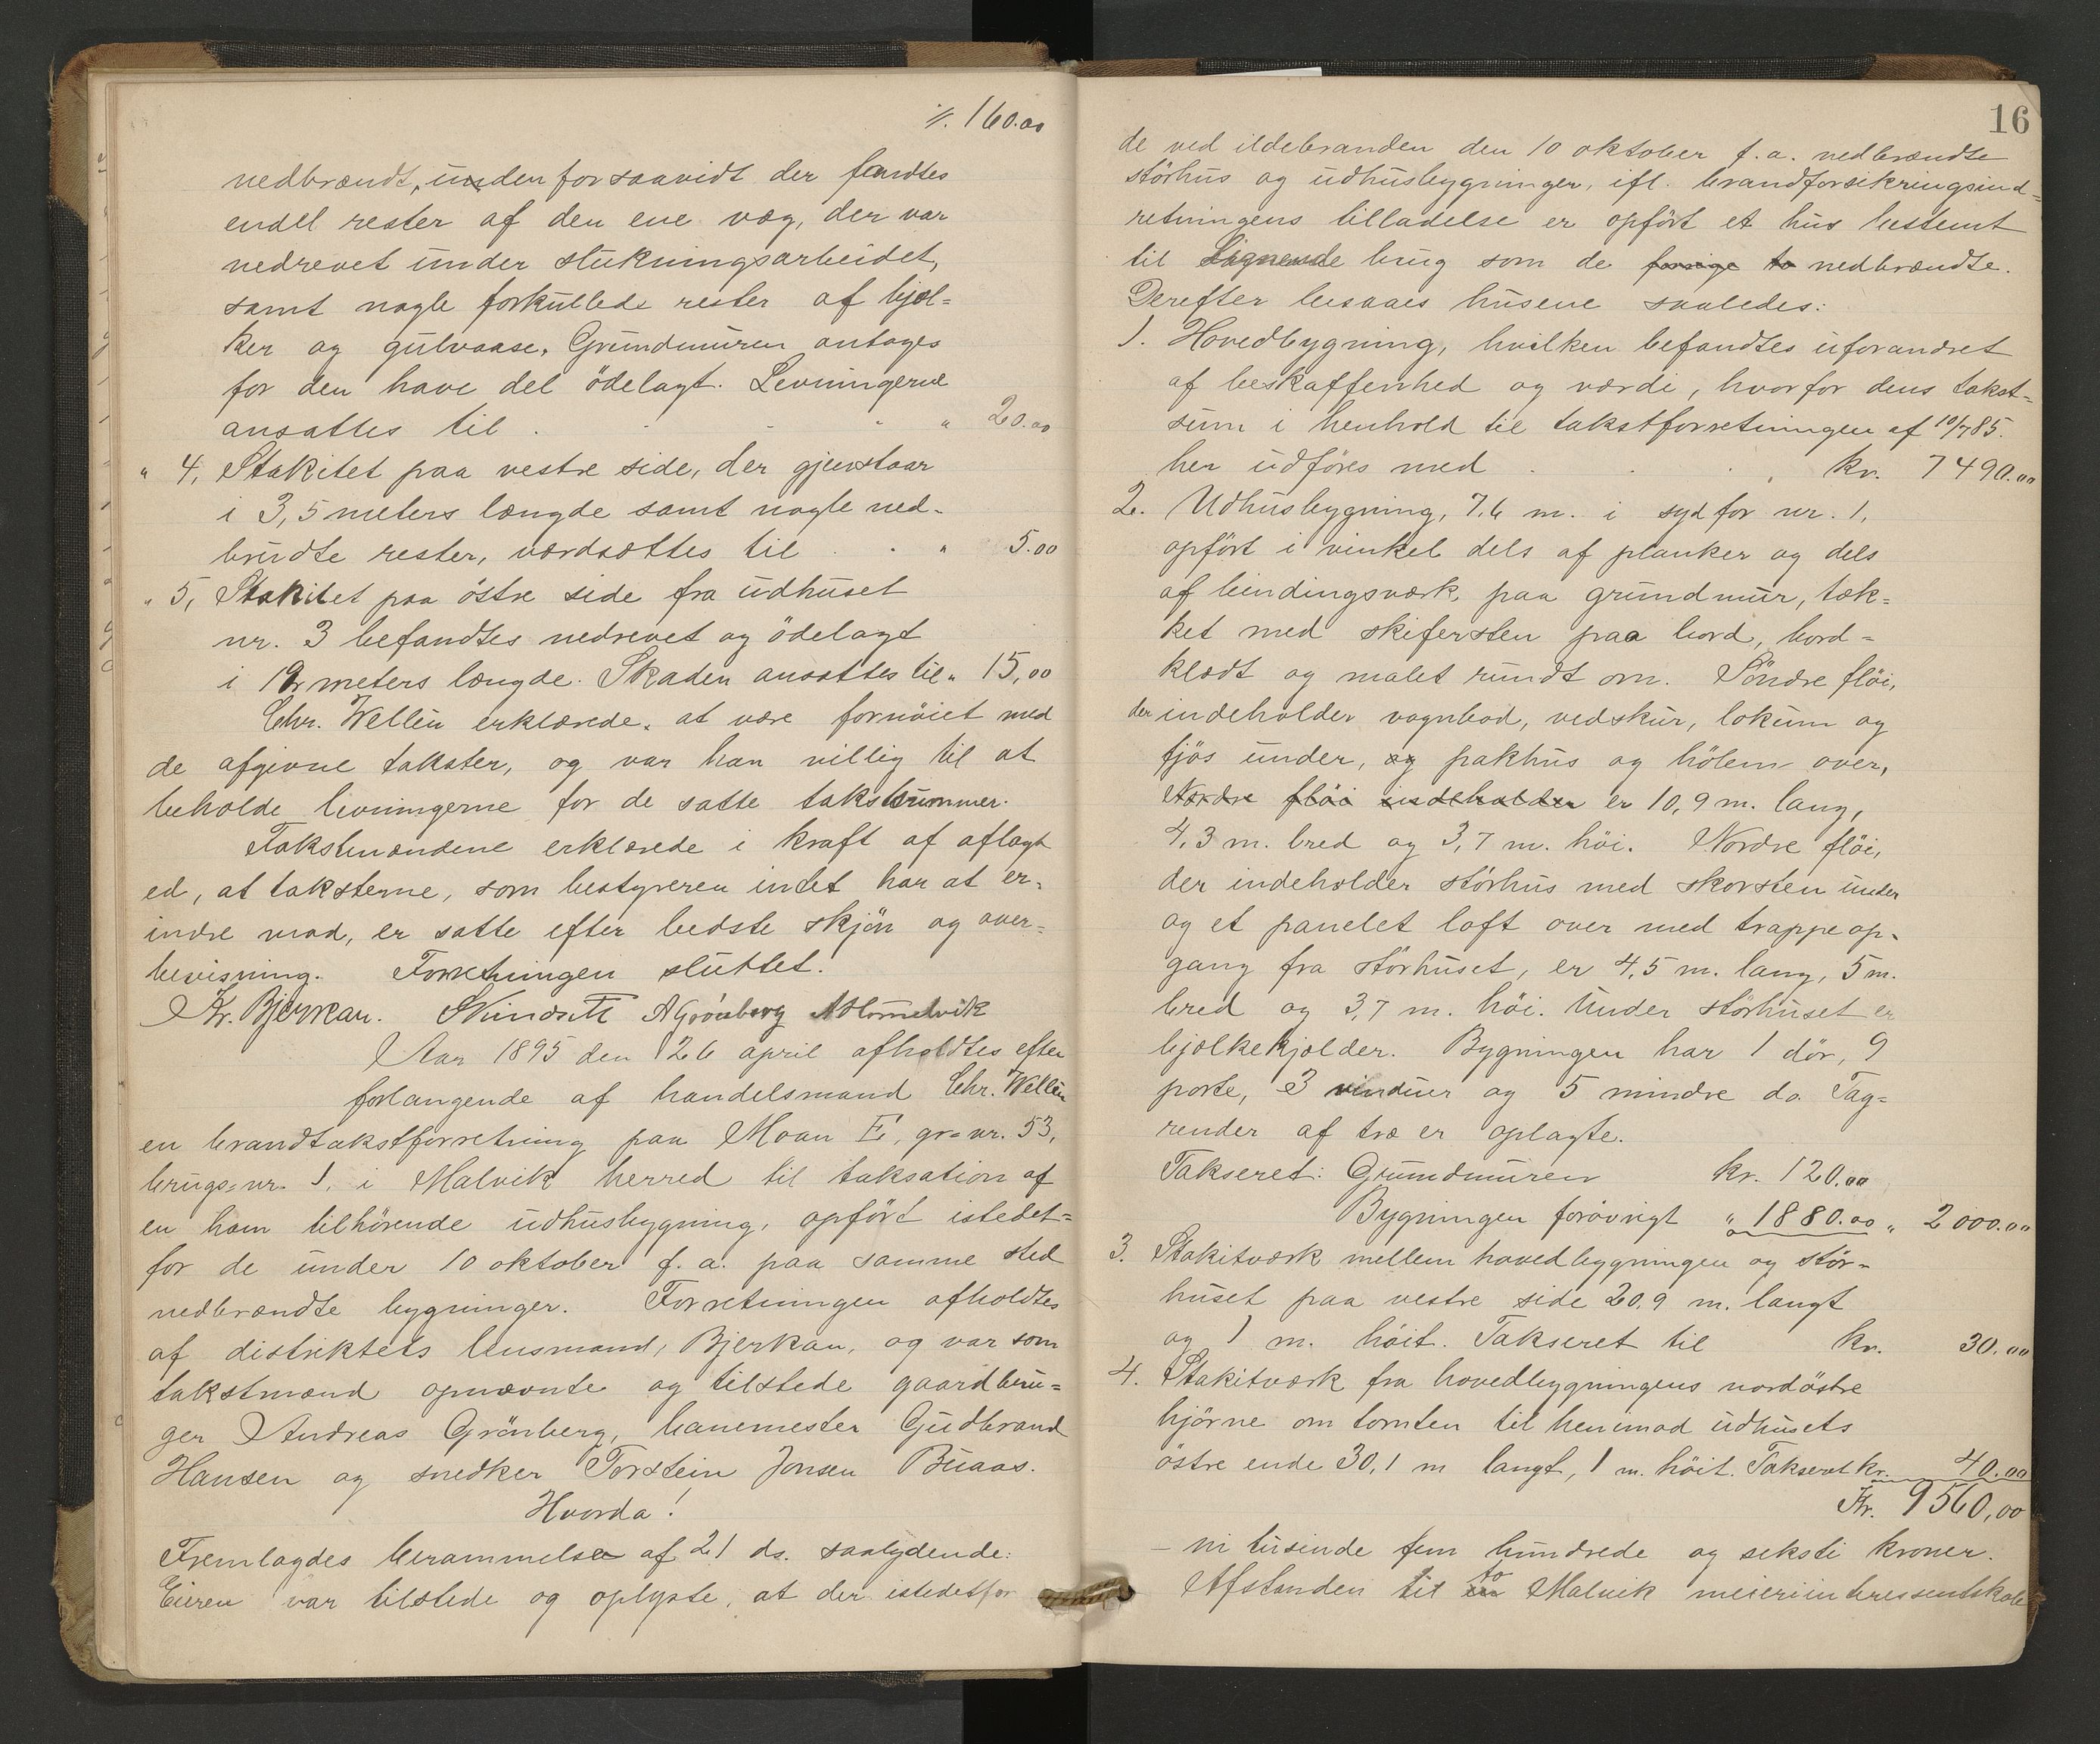 ∕. 160.00
nedbrændt, unden forsaavidt der fandtes
endel rester af den ene væg, der var
nedrevet under slukningsarbeidet,
samt nogle forkullede rester af bjæl-
ker og gulvaase. Grundmuren antages
for den halve del ödelagt. Levningerne
ansattes til . - - " " 20.00
" 4, Stakitet paa vestre side, der gjenstaar
i 3,5 meters længde samt nogle ned-
brudte rester, værdsættes til . . " 5.00
" 5, Stakitet paa östre side fra udhuset
nr. 3 befandtes nedrevet og ödelagt
i 12 meters længde. Skaden ansattes til " 15,00
Chr. Wellén erklærede, at være fornöiet med
de afgivne takster, og var han villig til at
beholde levningerne for de satte takstsummer.
Takstmændene erklærede i kraft af aflagt
ed, at taksterne, som bestyreren intet har at er-
indre mod, er satte efter bedste skjön og over-
bevisning. Forretningen sluttet.
Kr. Bjerkan. A Grönberg
Aar 1895 den 26 april afholdtes efter
forlangende af handelsmand Chr. Wellén
en brandtakstforretning paa Moan E, gr=nr. 53,
brugs=nr. 1, i Malvik herred til taksation af
en ham tilhörende udhusbygning, opfört istedet=
for de under 10 oktober f. a. paa samme sted
nedbrændte bygninger. Forretningen afholdtes
af distriktets lensmand, Bjerkan, og var som
takstmænd opnævnte og tilstede gaardbru=
ger Andreas Grönberg, banemester Gudbrand
Hansen og snedker Torstein Jonsen Buaas.
Hvorda!
Fremlagdes berammelse af 21 ds. saalydende:
Eieren var tilstede og oplyste, at der istedetfor
16
de ved ildebranden den 10 oktober f. a. nedbrændte
störhus og udhusbygninger, ifl. brandforsikringsind=
retningens tilladelse er opfört et hus bestemt
til lignende brug som de forrige to nedbrændte.
Derefter besaaes husene saaledes:
1. Hovedbygning, hvilken befandtes uforandret
af beskaffenhed og værdi, hvorfor dens takst=
sum i henhold til takstforretningen af 10/7 85.
her udföres med . . , kr. 7490.00
2. Udhusbygning, 7.6 m. i syd for nr. 1,
opfört i vinkel dels af planker og dels
af bindingsværk paa grundmur, tæk=
ket med skifersten paa bord, bord=
klædt og malet rundt om. Söndre flöi,
der indeholder vognbod, vedskur, lokum og
fjös under, og pakhus og hölem over,
Nordre flöi indeholder er 10,9 m. lang,
4,3 m. bred og 3,7 m. höi. Nordre flöi,
der indeholder störhus med skorsten under
og et panelet loft over med trappeop-
gang fra störhuset, er 4,5 m. lang, 5 m.
bred og 3,7 m. höi. Under störhuset er
bjælkekjælder. Bygningen har 1 dör, 9
porte, 3 vinduer og 5 mindre do. Tag=
render af træ er oplagte.
Takseret: Grundmuren kr. 120.00
Bygningen forövrigt " 1880.00 " 2000.00
3. Stakitværk mellem hovedbygningen og stör-
huset paa vestre side 20,9 m. langt
og 1 m. höit. Takseret til kr. 30.00
4. Stakitværk fra hovedbygningens nordöstre
hjörne om tomten til henimod udhusets
östre ende 30,1 m langt, 1 m. höit. Takseret kr. 40.00
Kr. 9560,00
- ni tusinde fem hundrede og seksti kroner.
Afstanden til to Malvik meieriinteressentskab